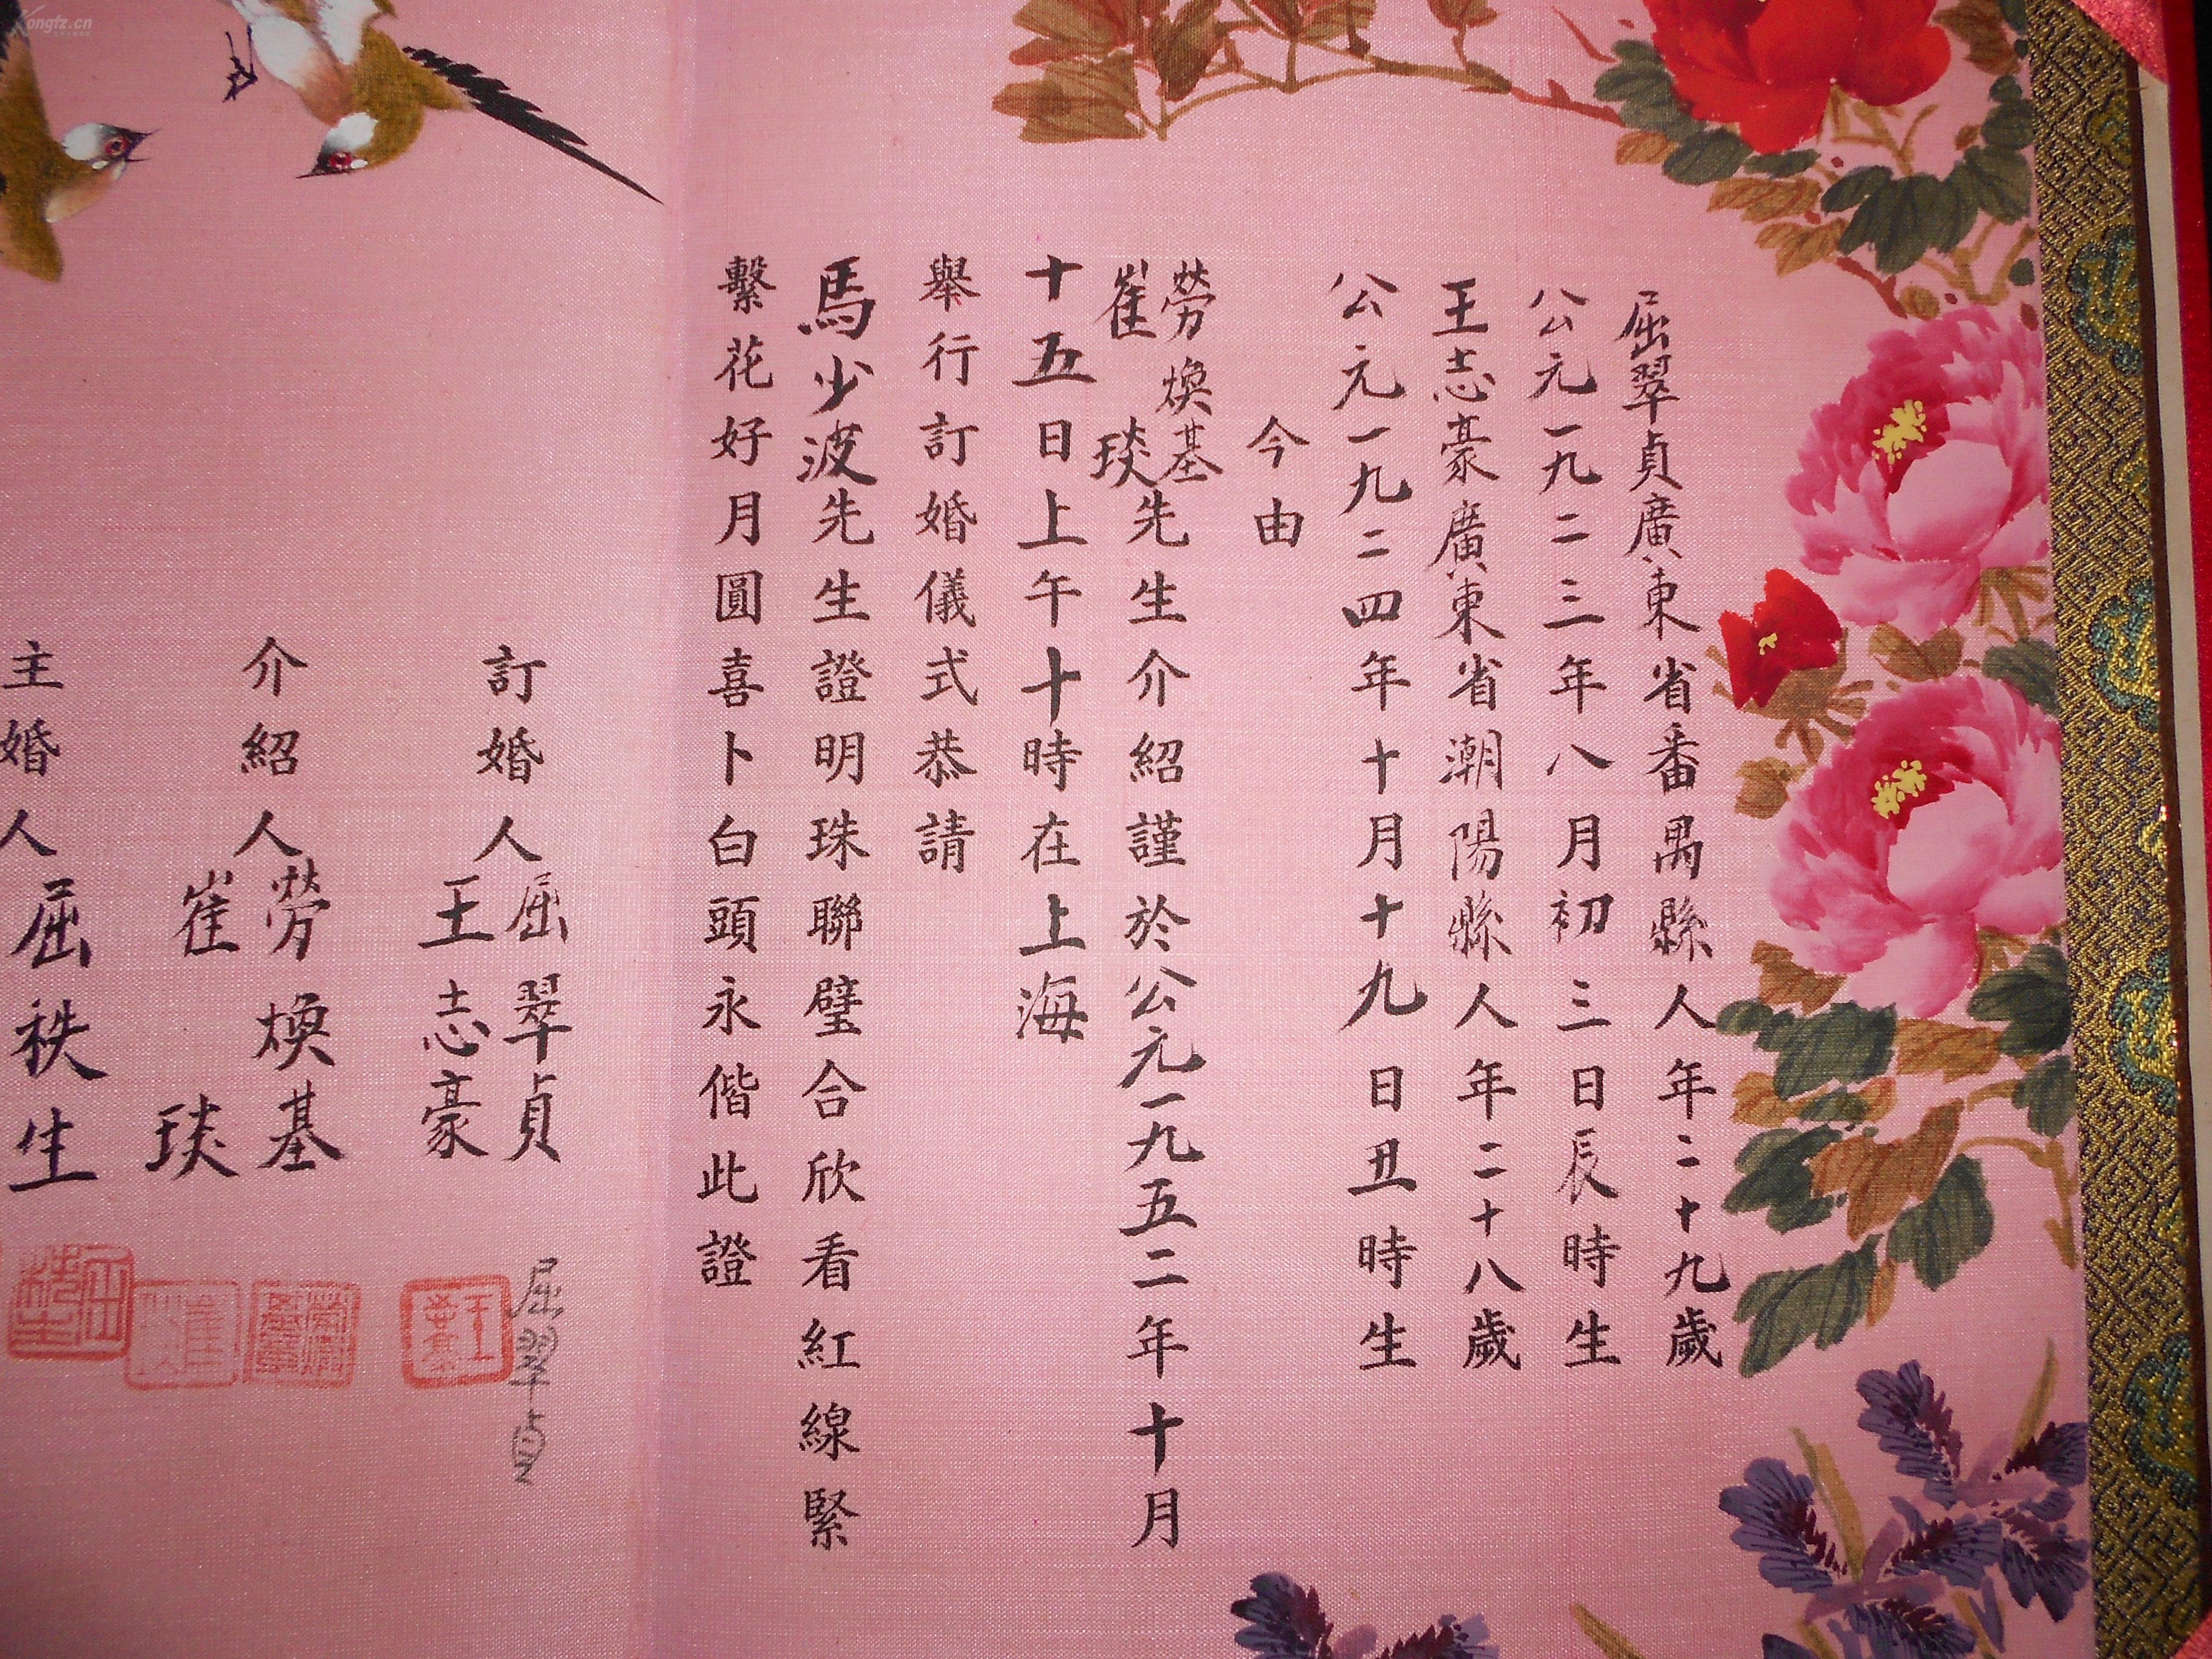 屈翠貞廣東省番禺縣人年二十九歲
公元一九二三年八月初三日辰時生
王志豪廣東省潮陽縣人年二十八歲
公元一九二四年十月十九日丑時生
今由
勞煥基
崔琰先生介紹謹於公元一九五二年十月
十五日上午十時在上海
舉行訂婚儀式恭請
馬少波先生證明珠聯璧合欣看紅線緊
繫花好月圓喜卜白頭永偕此證
訂婚人屈翠貞
王志豪
屈翠貞
王志豪
介紹人勞煥基
崔琰
主婚人屈秩生
Kongfz.cn